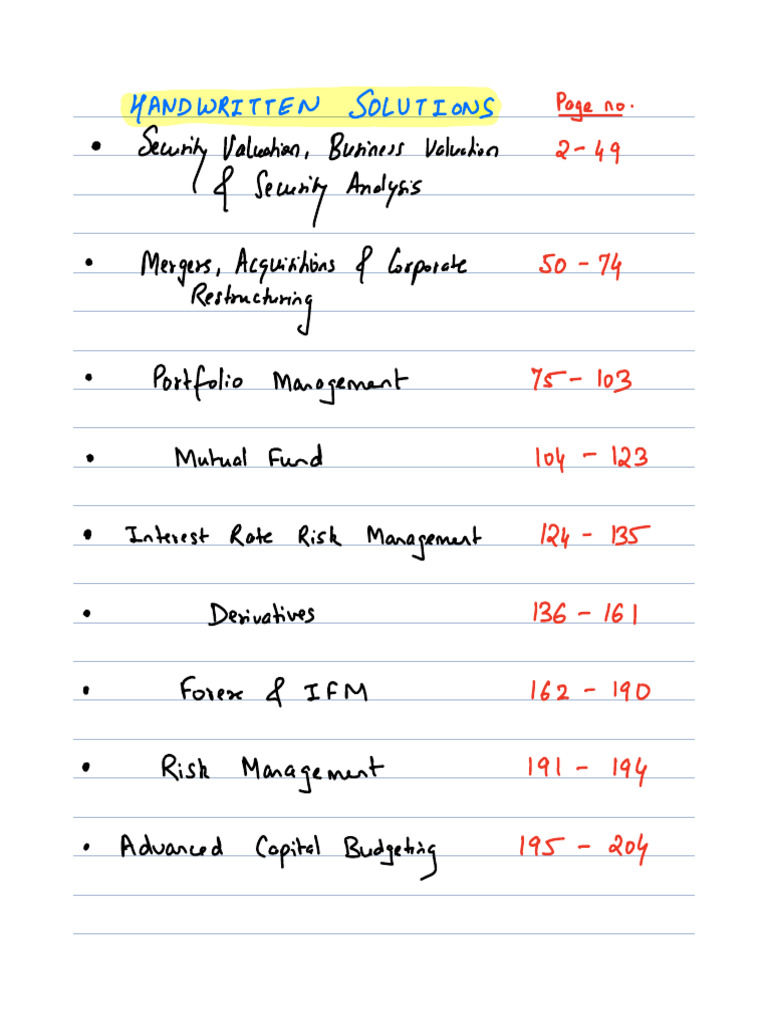 HANDWRITTEN SOLUTIONS Page no.
• Security Valuation, Business Valuation 2-49
& Security Analysis
• Mergers, Acquisitions & Corporate 50-74
Restructuring
• Portfolio Management 75-103
• Mutual Fund 104-123
• Interest Rate Risk Management 124-135
• Derivatives 136-161
• Forex & IFM 162-190
• Risk Management 191-194
• Advanced Capital Budgeting 195-204